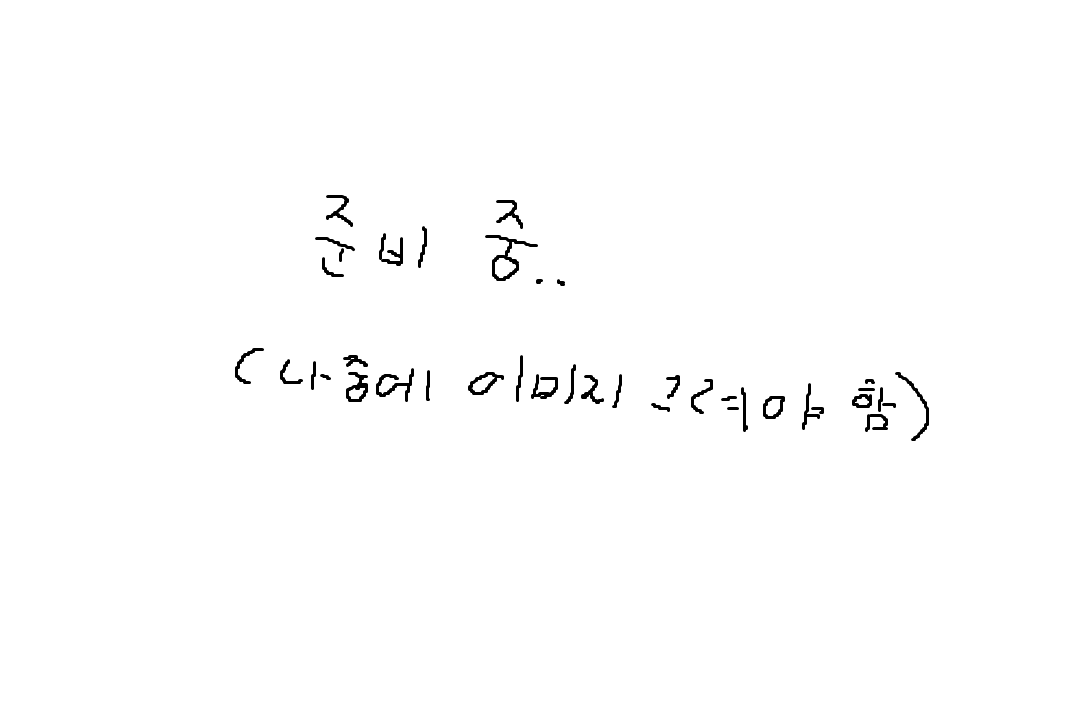 준비 중..
(나중에 이미지 그려야 함)